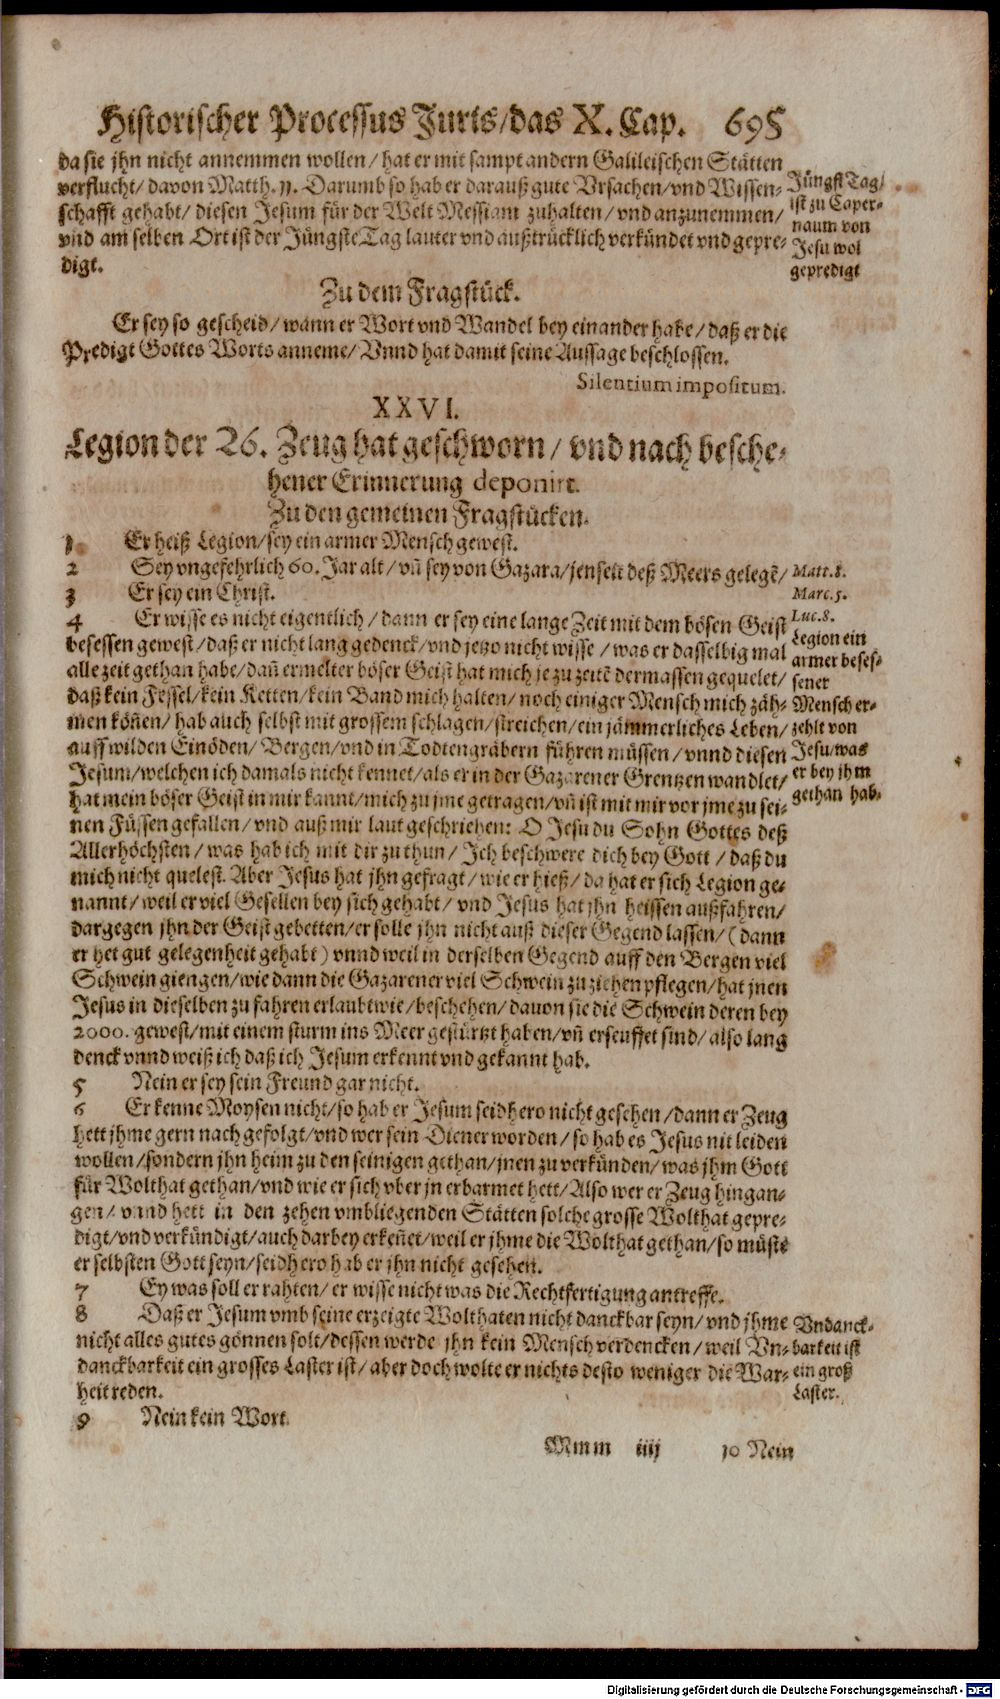 Historischer Processus Juris/das X. Cap. 695
da sie jhn nicht annemmen wollen/ hat er mit sampt andern Galileischen Stätten
verflucht/ davon Matth. 11. Darumb so hab er darauß gute Vrsachen/ vnd Wissen-
schafft gehabt/ diesen Jesum für der Welt Messiam zuhalten/ vnd anzunemmen/
vnd am selben Ort ist der Jüngste Tag lauter vnd außtrücklich verkündet vnd gepre-
digt.
Jüngst Tag/
ist zu Caper-
naum von
Jesu wol
gepredigt
Zu dem Fragstück.
Er sey so gescheid/ wann er Wort vnd Wandel bey einander habe/ daß er die
Predigt Gottes Worts anneme/ Vnnd hat damit seine Aussage beschlossen.
Silentium impositum.
XXVI.
Legion der 26. Zeug hat geschworn/ vnd nach besche-
hener Erinnerung deponirt.
Zu den gemeinen Fragstücken.
1 Er heiß Legion/ sey ein armer Mensch gewest.
2 Sey vngefehrlich 60. Jar alt/ vñ sey von Gazara/ jenseit deß Meers gelegẽ/
3 Er sey ein Christ.
4 Er wisse es nicht eigentlich/ dann er sey eine lange Zeit mit dem bösen Geist
besessen gewest/ daß er nicht lang gedenck/ vnd jetzo nicht wisse/ was er dasselbig mal
alle zeit gethan habe/ dañ ermelter böser Geist hat mich je zu zeitẽ dermassen gequelet/
daß kein Fessel/ kein Ketten/ kein Band mich halten/ noch einiger Mensch mich zäh-
men köñen/ hab auch selbst mit grossem schlagen/ streichen/ ein jämmerliches Leben/
auff wilden Einöden/ Bergen/ vnd in Todtengräbern führen müssen/ vnnd diesen
Jesum/ welchen ich damals nicht kennet/ als er in der Gazarener Grentzen wandlet/
hat mein böser Geist in mir kannt/ mich zu jme getragen/ vñ ist mit mir vor jme zu sei-
nen Füssen gefallen/ vnd auß mir laut geschriehen: O Jesu du Sohn Gottes deß
Allerhöchsten/ was hab ich mit dir zu thun/ Ich beschwere dich bey Gott/ daß du
mich nicht quelest. Aber Jesus hat jhn gefragt/ wie er hieß/ da hat er sich Legion ge-
nannt/ weil er viel Gesellen bey sich gehabt/ vnd Jesus hat jhn heissen außfahren/
dargegen jhn der Geist gebetten/ er solle jhn nicht auß dieser Gegend lassen/ (dann
er het gut gelegenheit gehabt) vnnd weil in derselben Gegend auff den Bergen viel
Schwein giengen/ wie dann die Gazarener viel Schwein zu ziehen pflegen/ hat jnen
Jesus in dieselben zu fahren erlaubt wie/ beschehen/ davon sie die Schwein deren bey
2000. gewest/ mit einem sturm ins Meer gestürtzt haben/ vñ erseuffet sind/ also lang
denck vnnd weiß ich daß ich Jesum erkennt vnd gekannt hab.
Matt. 8.
Marc. 5.
Luc. 8.
Legion ein
armer beses-
sener
Mensch er-
zehlt von
Jesu/ was
er bey jhm
gethan hab.
5 Nein er sey sein Freund gar nicht.
6 Er kenne Moysen nicht/ so hab er Jesum seidhero nicht gesehen/ dann er Zeug
hett jhme gern nach gefolgt/ vnd wer sein Diener worden/ so hab es Jesus nit leiden
wollen/ sondern jhn heim zu den seinigen gethan/ jnen zu verkünden/ was jhm Gott
für Wolthat gethan/ vnd wie er sich vber jn erbarmet hett/ Also wer er Zeug hingan-
gen/ vnnd hett in den zehen vmbliegenden Stätten solche grosse Wolthat gepre-
digt/ vnd verkündigt/ auch darbey erkeñet/ weil er jhme die Wolthat gethan/ so müste
er selbsten Gott seyn/ seidhero hab er jhn nicht gesehen.
7 Ey was soll er rahten/ er wisse nicht was die Rechtfertigung antreffe.
8 Daß er Jesum vmb seine erzeigte Wolthaten nicht danckbar seyn/ vnd jhme
nicht alles gutes gönnen solt/ dessen werde jhn kein Mensch verdencken/ weil Vn-
danckbarkeit ein grosses Laster ist/ aber doch wolte er nichts desto weniger die War-
heit reden.
Vndanck-
barkeit ist
ein groß
Laster.
9 Nein kein Wort.
Mmm iiij 10 Nein
Digitalisierung gefördert durch die Deutsche Forschungsgemeinschaft - DFG